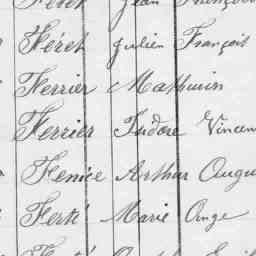 Jean
Féret Julien François
Ferrier Mathurin
Ferrier Isidore Vincen
Fenice Arthur Augu
Ferté Marie Ange